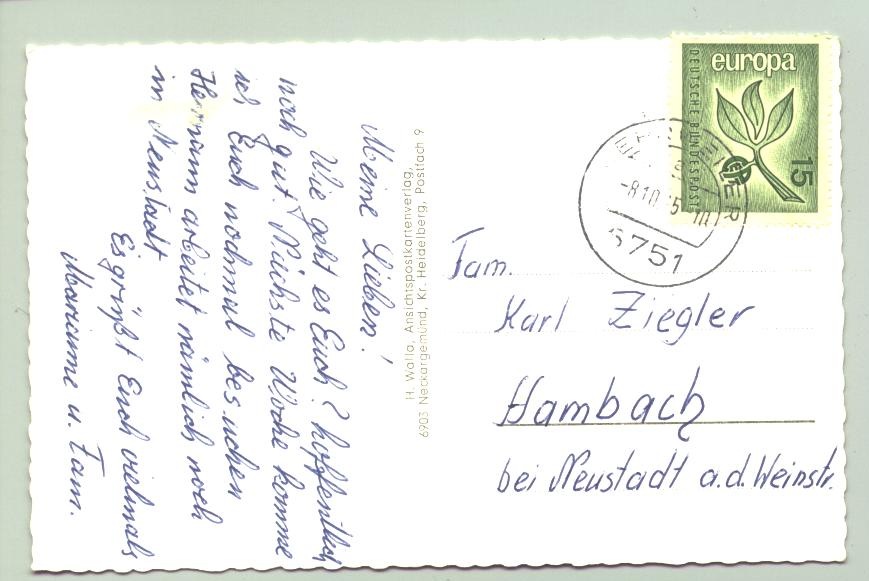 Meine Lieben!
Wie geht es Euch? hoffentlich
noch gut. Nächste Woche komme
ich Euch nochmal besuchen
Hermann arbeitet nämlich noch
in Neustadt
Es grüßt Euch vielmals
Marianne u. Fam.
H. Walla, Ansichtspostkartenverlag,
6903 Neckargemünd, Kr. Heidelberg, Postfach 9
europa
DEUTSCHE BUNDESPOST
15
CEPT
-8.10.65-10
6751
Fam.
Karl Ziegler
Hambach
bei Neustadt a.d. Weinstr.